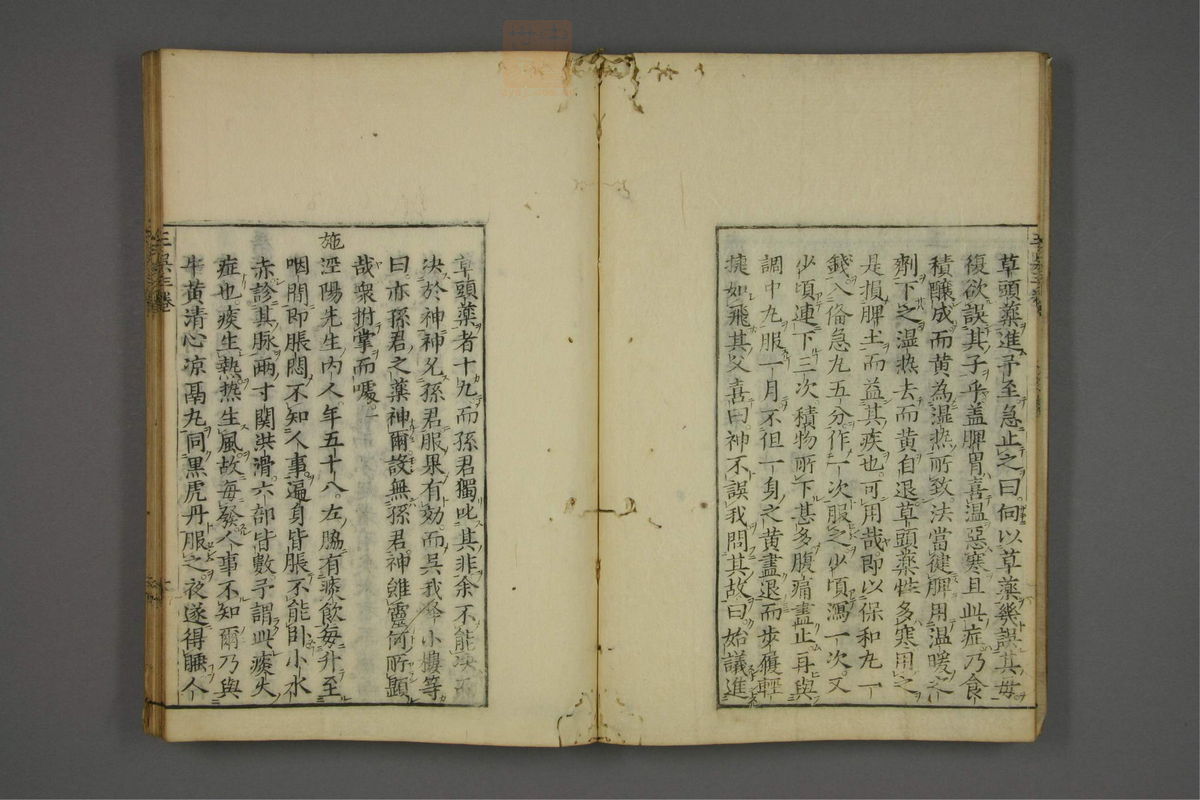 草頭藥進予至急止之曰何以草藥幾誤其母
復欲誤其子乎盖脾胃喜温惡寒且此症乃食
積釀成而黃為湿热所致法當健脾用温暖之
劑下之湿热去而黃自退草頭藥性多寒用之
是損脾土而益其疾也可用哉即以保和丸一
錢入備急丸五分作一次服之少頃瀉一次又
少頃連下三次積物所下甚多腹痛盡止再與
調中丸服一月不但一身之黃盡退而步履輕
捷如飛其父喜曰神不誤我問其故曰始議進
草頭藥者十九而孫君獨叱其非余不能决而
决於神神允孫君服果有効而吳我峯小樓等
曰亦孫君之藥神爾設無孫君神雖靈何所顯
哉衆拊掌而噱
施涇陽先生内人年五十八左脇有痰飲每升至
咽間即脹悶不知人事遍身皆脹不能卧小水
赤診其脉兩寸関洪滑六部皆數予謂此痰火
症也痰生熱熱生風故每發人事不知爾乃與
牛黃清心凉鬲丸同黑虎丹服之夜遂得睡人